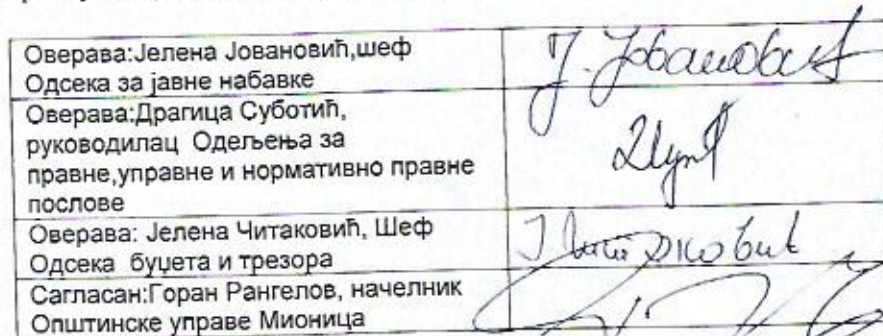 Оверава:Јелена Јовановић,шеф
Одсека за јавне набавке
Ј. Јовановић
Оверава:Драгица Суботић,
руководилац Одељења за
правне,управне и нормативно правне
послове
Оверава: Јелена Читаковић, Шеф
Одсека буџета и трезора
Сагласан:Горан Рангелов, начелник
Општинске управе Мионица